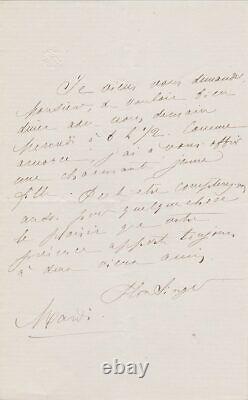 Je viens vous demander
Monsieur, de vouloir bien
diner avec nous, demain
Mercredi à 6 h 1/2. Comme
amorce, j'ai à vous offrir
une charmante jeune
fille. Peut-être compterez-vous
pour quelque chose
le plaisir que votre
présence apporte toujours
à deux vieux amis.
Mardi.